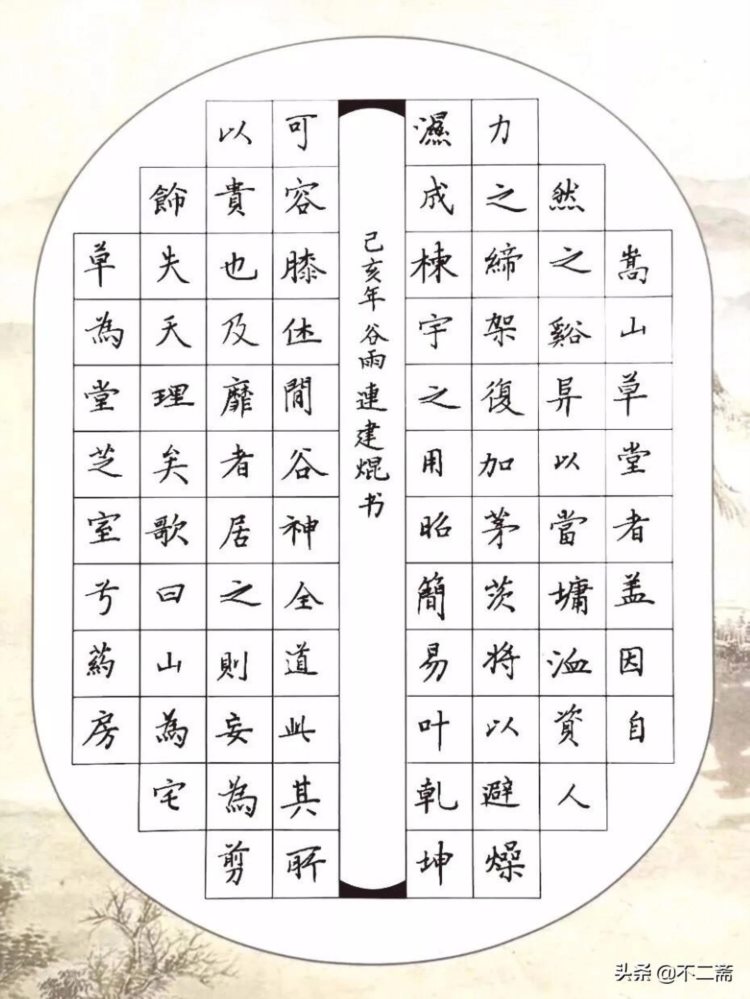 嵩山草堂者盖因自
然之谿异以當墉洫資人
力之締架復加茅茨將以避燥
濕成棟宇之用昭簡易叶乾坤
己亥年谷雨連建焜书
可容膝休閒谷神全道此其所
以貴也及靡者居之則妄為剪
飾失天理矣歌曰山為宅
草為堂芝室兮葯房
头条 @不二斋